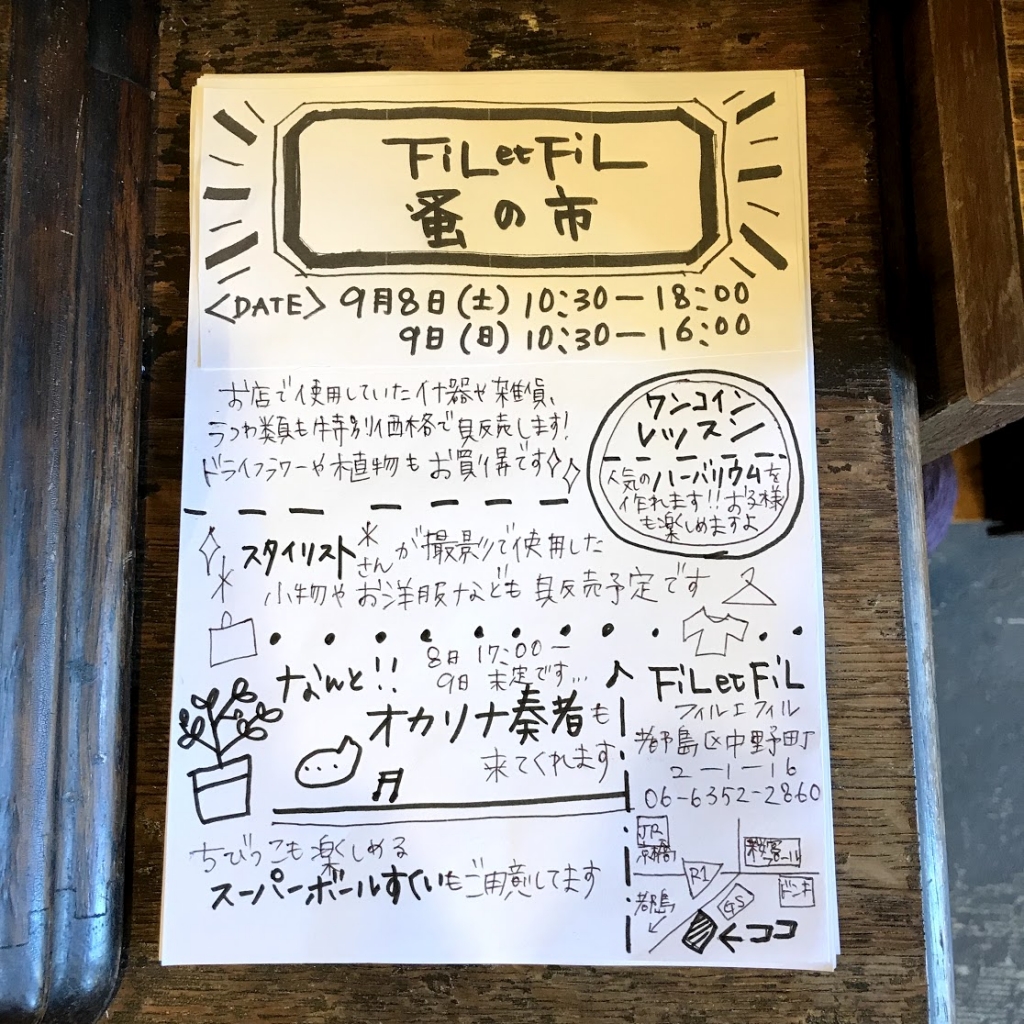 FiLetFiL
蚤の市
<DATE> 9月8日(土) 10:30-18:00
9日(日) 10:30-16:00
お店で使用していた什器や雑貨、
うつわ類も特別価格で販売します!
ドライフラワーや植物もお買得です
ワンコイン
レッスン
人気のハーバリウムを
作れます!!お子様
も楽しめますよ
スタイリストさんが撮影で使用した
小物やお洋服なども販売予定です
なんと!!
8日 17:00~
9日 未定です...
オカリナ奏者も
来てくれます
ちびっこも楽しめる
スーパーボールすくいもご用意してます
FiLetFiL
フィルエフィル
都島区中野町
2-1-16
06-6352-2860
JR
京橋
R1
桜宮
プール
ドンキ
都島
GS
←ココ